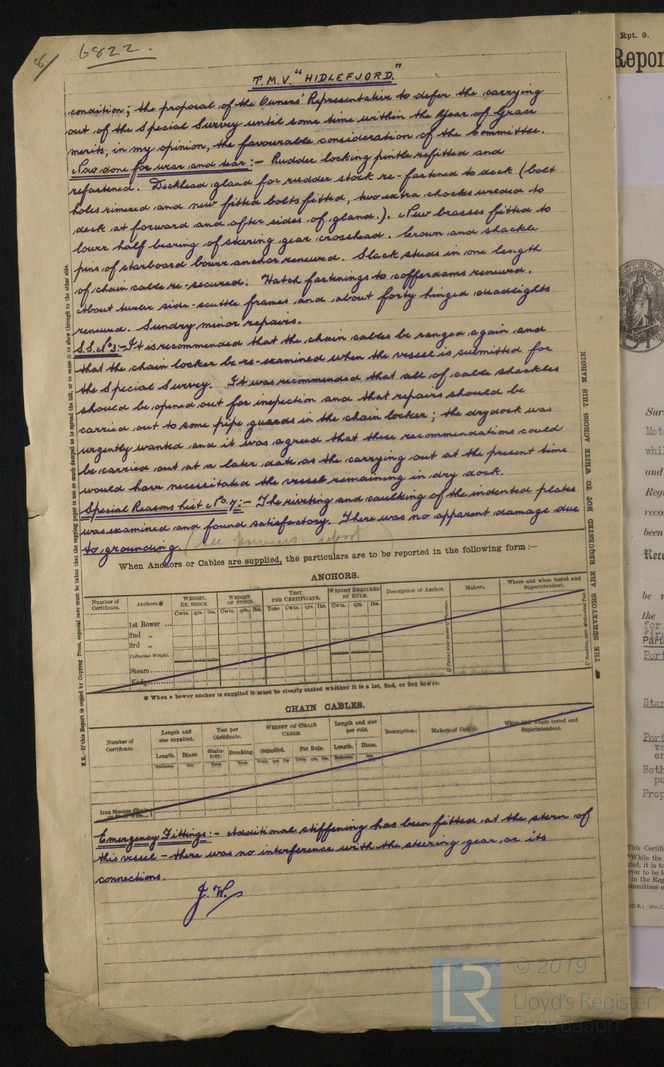 8/
6822.
T.M.V. "HIDLEFJORD."
condition; the proposal of the Owners' Representative to defer the carrying
out of the Special Survey until some time within the Year of Grace
merits, in my opinion, the favourable consideration of the Committee.
Now done for wear and tear:- Rudder locking pintle refitted and
refastened. Deckhead gland for rudder stock re-fastened to deck (bolt
holes rimered and new fitted bolts fitted, two extra chocks welded to
deck at forward and after sides of gland.). New brasses fitted to
lower half bearing of steering gear crosshead. Crown and shackle
pins of starboard bower anchor renewed. Slack studs in one length
of chain cable re-secured. Hatch fastenings to cofferdams renewed.
About twelve side-scuttle frames and about forty hinged deadlights
renewed. Sundry minor repairs.
S.S. No 3:- It is recommended that the chain cables be ranged again and
that the chain locker be re-examined when the vessel is submitted for
the Special Survey. It was recommended that all of cable shackles
should be opened out for inspection and that repairs should be
carried out to some pipe guards in the chain locker; the drydock was
urgently wanted and it was agreed that these recommendations could
be carried out at a later date as the carrying out at the present time
would have necessitated the vessel remaining in dry dock.
Special Reasons List No. 7:- The riveting and caulking of the indented plates
was examined and found satisfactory. There was no apparent damage due
to grounding.
When Anchors or Cables are supplied, the particulars are to be reported in the following form:—
ANCHORS.
Number of Certificate. Anchors.* WEIGHT, EX. STOCK. WEIGHT OF STOCK. TEST PER CERTIFICATE. WEIGHT REQUIRED BY RULE. Description of Anchor. Makers. Where and when tested and Superintendent.
Cwts. qrs. lbs. Cwts. qrs. lbs. Tons Cwts. qrs. lbs. Cwts. qrs. lbs.
1st Bower ...
2nd „
3rd „
Collective Weight.
Stream
Kedge
* When a bower anchor is supplied it must be clearly stated whether it is a 1st, 2nd, or 3rd bower.
CHAIN CABLES.
Number of Certificate. Length and size supplied. Test per Certificate. WEIGHT OF CHAIN CABLE. Length and size per rule. Description. Makers of Cable. Where and when tested and Superintendent.
Length. Diam. Statutory. Breaking. Supplied. Per Rule. Length. Diam.
Iron Stream Chain
Emergency Fittings:- Additional stiffening has been fitted at the stern of
this vessel - there was no interference with the steering gear or its
connections.
J. W.
THE SURVEYORS ARE REQUESTED NOT TO WRITE ACROSS THIS MARGIN.
N.B.—If this Report is copied by Copying Press, especial care must be taken that the copying paper is not so much damped as to spread the ink, or to cause it to show through to the other side.
Rpt. 9.
Repor
Sur
Mot
whi
and
Reg
reco
been
Rece
be
the
for
Part
Port
Star
Port
va
en
Both
pu
Prop
This Certifi
"While the
in the Reg
© 2019
LR
Lloyd's Register
Foundation